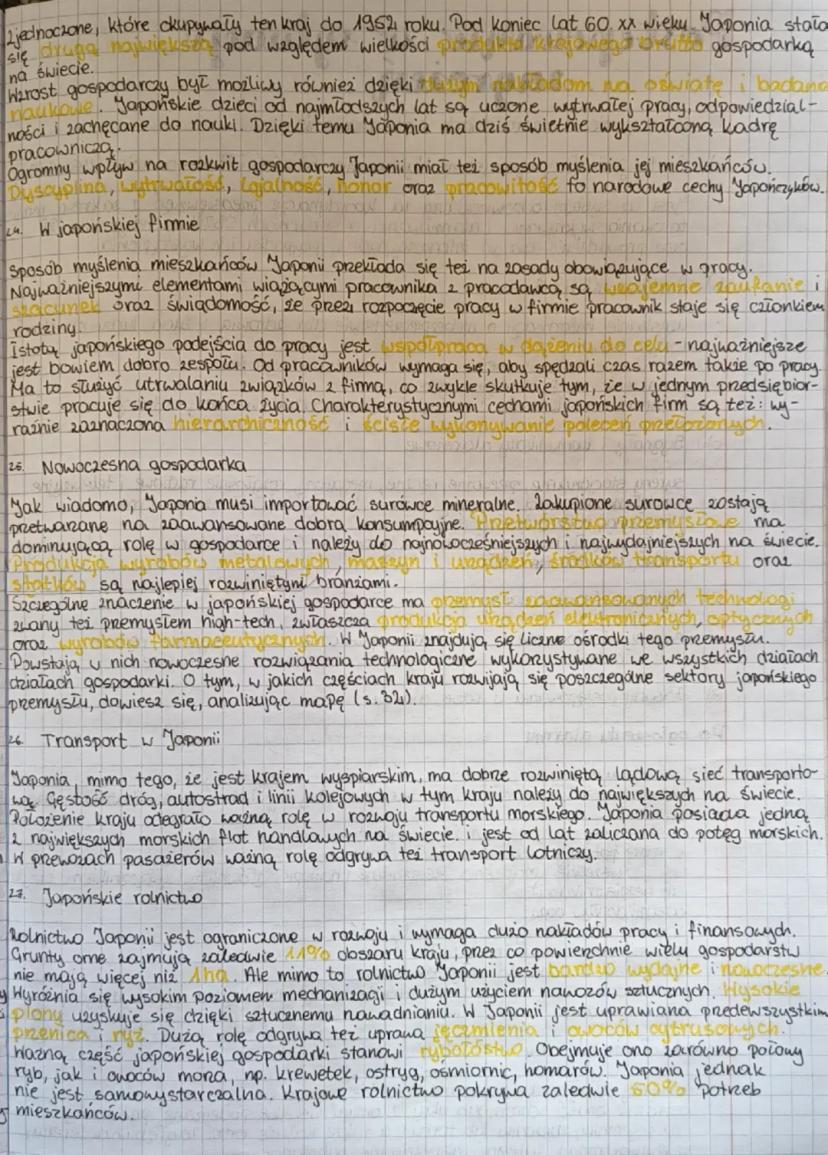 zjednoczone, które okupywały ten kraj do 1952 roku. Pod koniec lat 60. XX wieku Japonia stała
się drugą największą pod względem wielkości produktu krajowego brutto gospodarką
na świecie.
Wzrost gospodarczy był możliwy również dzięki dużym nakładom na oświatę i badana
naukowe. Japońskie dzieci od najmłodszych lat są uczone wytrwałej pracy, odpowiedzial-
ności i zachęcane do nauki. Dzięki temu Japonia ma dziś świetnie wykształconą kadrę
pracowniczą.
Ogromny wpływ na rozkwit gospodarczy Japonii miał też sposób myślenia jej mieszkańców.
Dyscyplina, wytrwałość, lojalność, honor oraz pracowitość to narodowe cechy Japończyków.
24. W japońskiej firmie
Sposób myślenia mieszkańców Japonii przekłada się też na zasady obowiązujące w pracy.
Najważniejszymi elementami wiążącymi pracownika z pracodawcą są wzajemne zaufanie i
szacunek oraz świadomość, że przez rozpoczęcie pracy w firmie pracownik staje się członkiem
rodziny.
Istotą japońskiego podejścia do pracy jest współpraca w dążeniu do celu - najważniejsze
jest bowiem dobro zespołu. Od pracowników wymaga się, aby spędzali czas razem także po pracy.
Ma to służyć utrwalaniu związków z firmą, co zwykle skutkuje tym, że w jednym przedsiębior-
stwie pracuje się do końca życia. Charakterystycznymi cechami japońskich firm są też: wy-
raźnie zaznaczona hierarchiczność i ścisłe wykonywanie poleceń przełożonych.
25. Nowoczesna gospodarka
Jak wiadomo, Japonia musi importować surówce mineralne. Zakupione surowce zostają
przetwarzane na zaawansowane dobra konsumpcyjne. Przetwórstwo przemysłowe ma
dominującą rolę w gospodarce i należy do najnowocześniejszych i najwydajniejszych na świecie.
Produkcja wyrobów metalowych, maszyn i urządzeń, środków transportu oraz
statków są najlepiej rozwiniętymi branżami.
Szczególne znaczenie w japońskiej gospodarce ma przemysł zaawansowanych technologi
zwany też przemysłem high-tech, zwłaszcza produkcja urządzeń elektronicznych, optycznych
oraz wyrobów farmaceutycznych. W Japonii znajdują się liczne ośrodki tego przemysłu.
Powstają w nich nowoczesne rozwiązania technologiczne wykorzystywane we wszystkich działach
działach gospodarki. O tym, w jakich częściach kraju rozwijają się poszczególne sektory japońskiego
przemysłu, dowiesz się, analizując mapę (s. 32).
26. Transport w Japonii
Japonia, mimo tego, że jest krajem wyspiarskim, ma dobrze rozwiniętą lądową sieć transporto-
wą. Gęstość dróg, autostrad i linii kolejowych w tym kraju należy do największych na świecie.
Położenie kraju odegrało ważną rolę w rozwoju transportu morskiego. Japonia posiada jedną
z największych morskich flot handlowych na świecie. i jest od lat zaliczana do potęg morskich.
W przewozach pasażerów ważną rolę odgrywa też transport lotniczy.
27. Japońskie rolnictwo
Rolnictwo Japonii jest ograniczone w rozwoju i wymaga dużo nakładów pracy i finansowych.
Grunty orne zajmują zaledwie 11% obszaru kraju, przez co powierzchnie wielu gospodarstw
nie mają więcej niż 1ha. Ale mimo to rolnictwo Japonii jest bardzo wydajne i nowoczesne.
Wyróżnia się wysokim poziomem mechanizacji i dużym użyciem nawozów sztucznych. Wysokie
plony uzyskuje się dzięki sztucznemu nawadnianiu. W Japonii jest uprawiana przedewszystkim
pszenica i ryż. Dużą rolę odgrywa też uprawa jęczmienia i owoców cytrusowych.
Ważną część japońskiej gospodarki stanowi rybołóstwo. Obejmuje ono zarówno połowy
ryb, jak i owoców morza, np. krewetek, ostryg, ośmiornic, homarów. Japonia jednak
nie jest samowystarczalna. Krajowe rolnictwo pokrywa zaledwie 50% potrzeb
mieszkańców.